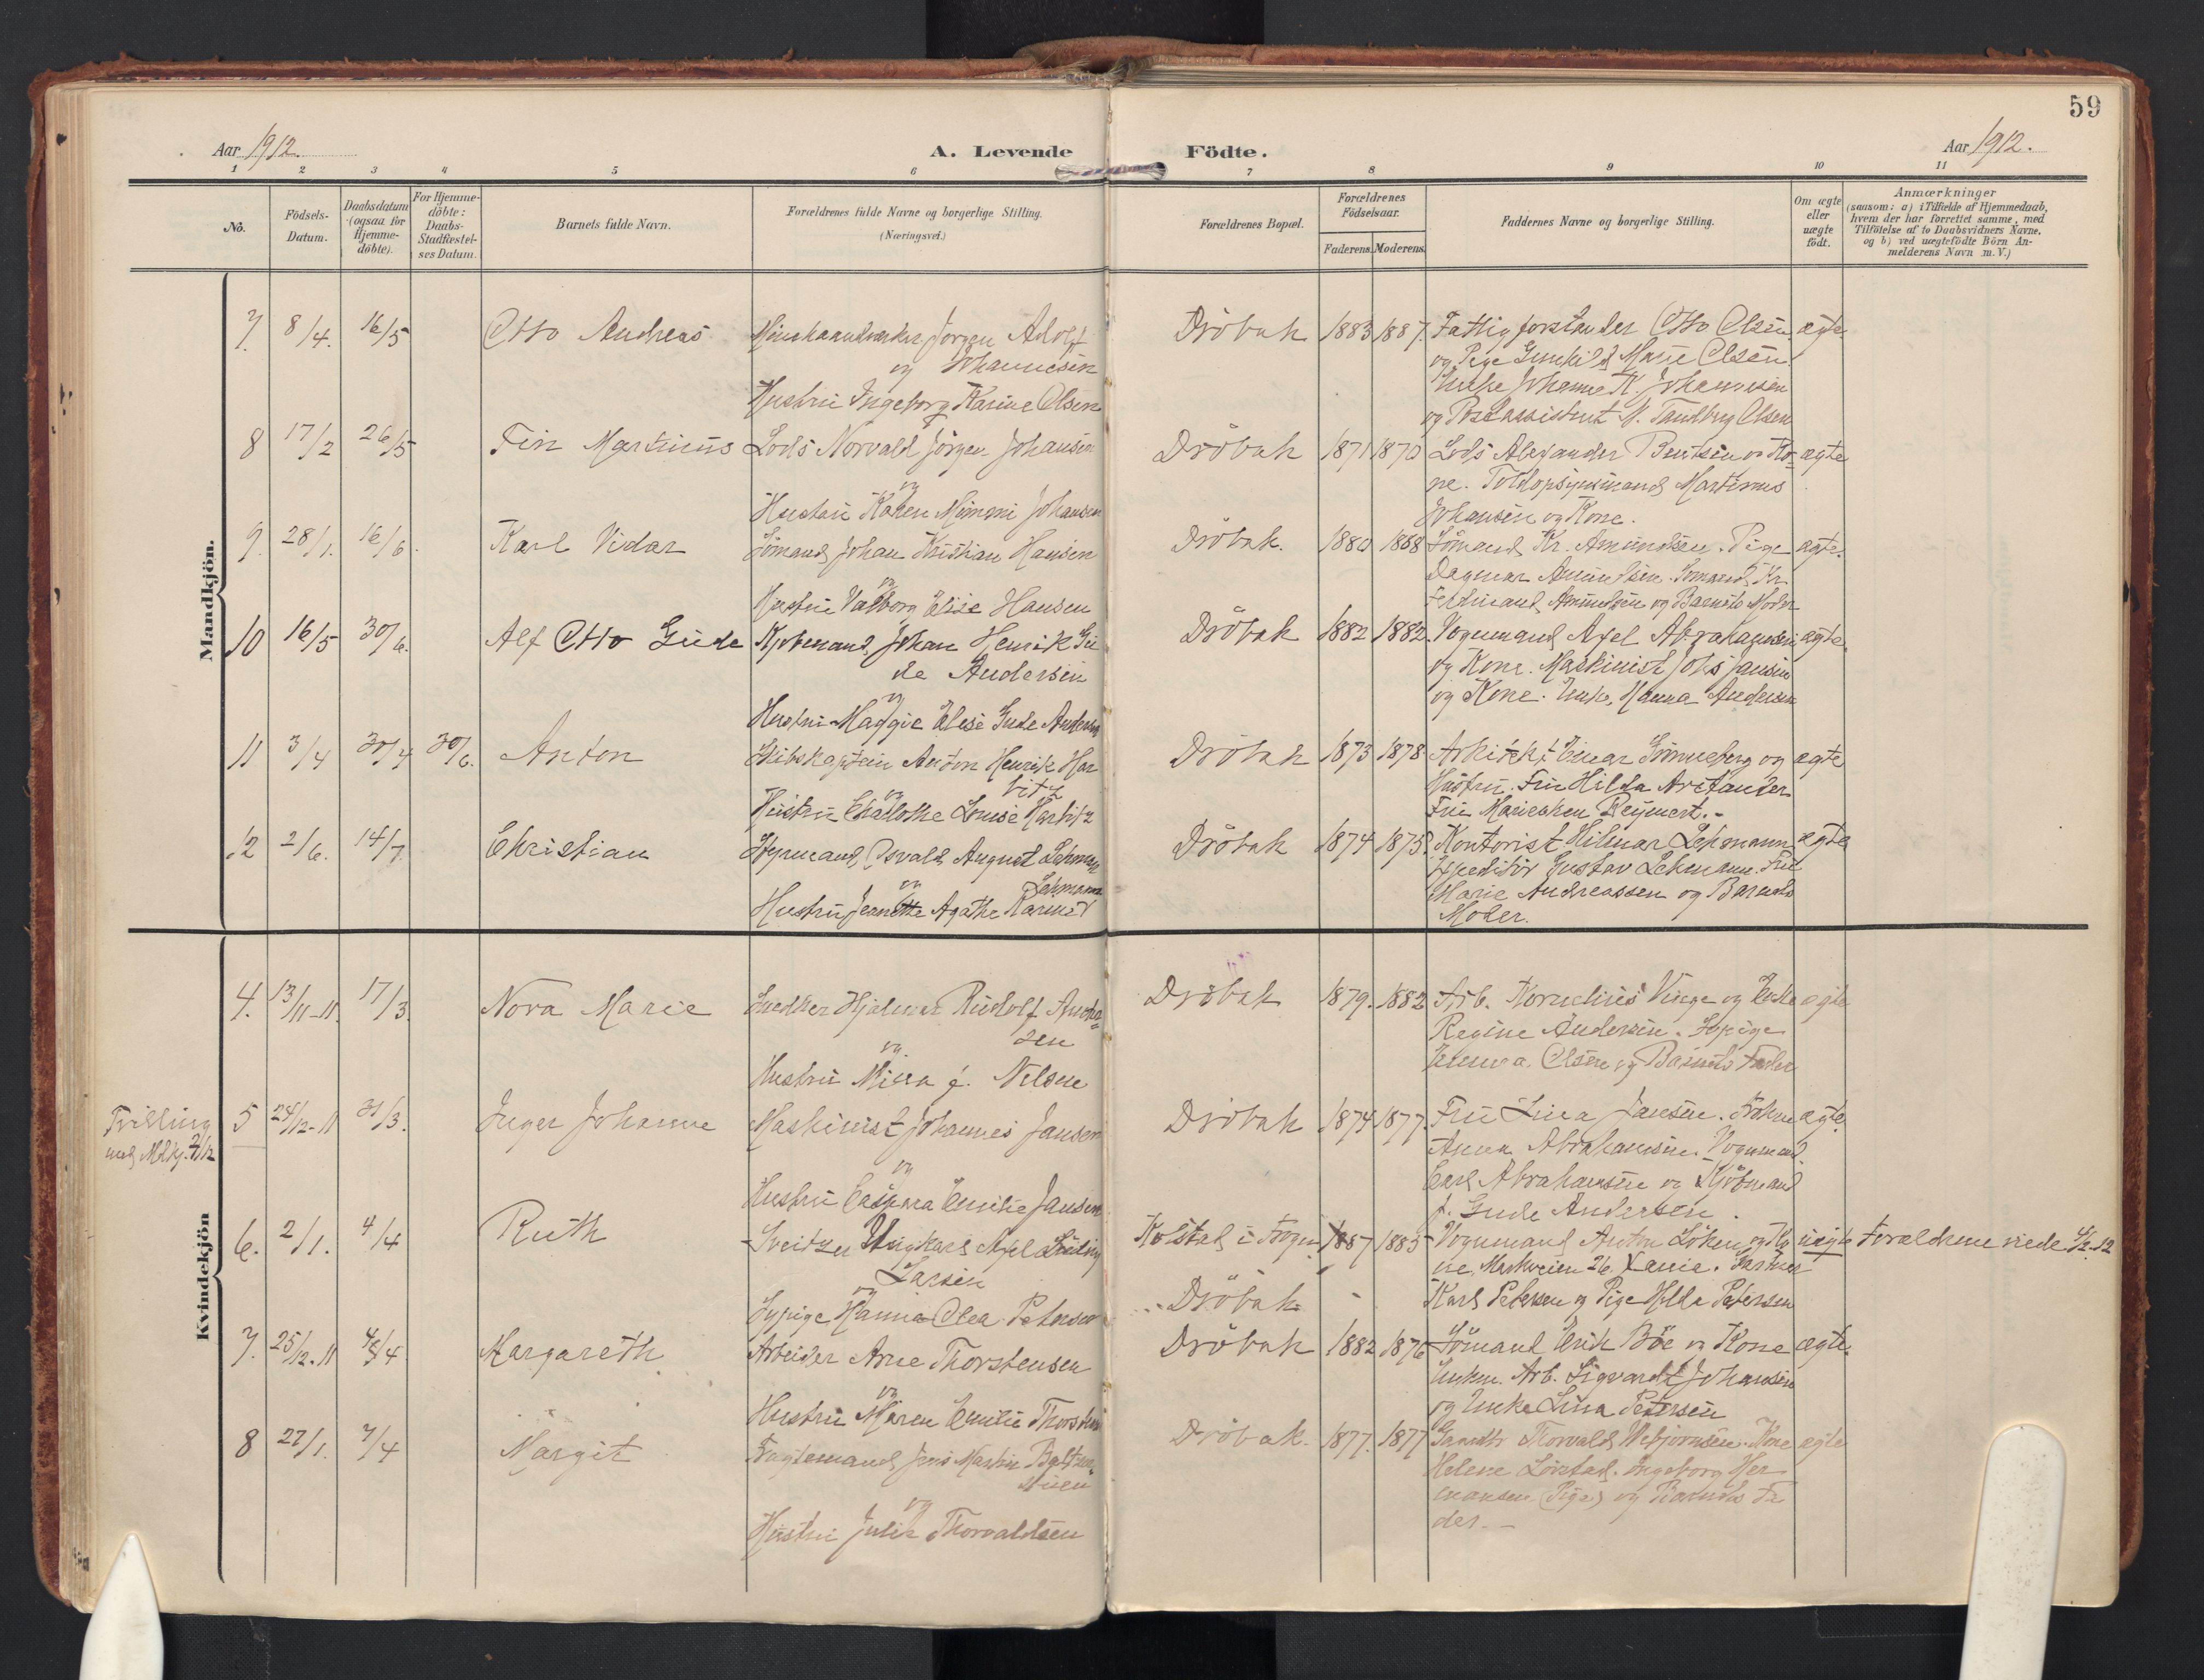 59
Aar 1912.
A. Levende Födte.
Aar 1912.
1 2 3 4 5 6 7 8 9 10 11
No.
Födsels-Datum.
Daabsdatum (ogsaa for Hjemme-döbte).
For Hjemme-döbte: Daabs-Stadfæstel-ses Datum.
Barnets fulde Navn.
Forældrenes fulde Navne og borgerlige Stilling.
(Næringsvei.)
Forældrenes Bopæl.
Forældrenes Födselsaar.
Faderens. Moderens.
Faddernes Navne og borgerlige Stilling.
Om ægte eller uægte födt.
Anmærkninger
(saasom: a) i Tilfælde af Hjemmedaab,
hvem der har forrettet samme, med
Tilföielse af to Daabsvidners Navne,
og b) ved uægtefödte Börn An-
melderens Navn m. V.)
Mandkjön.
7. 8/4. 16/5 Otto Andreas Jörgen Adolf Dröbak 1883 1887. Fattigforstander Otto Olsen ægte
og Johannesen og Pige Gunhild Marie Olsen
Enke Johanne K. Johannesen
Hustru Ingeborg Karine Olsen og Postassistent Tandberg Olsen
8 17/2 26/5 Fin Martinus Lods Norvald Jörgen Johansen Dröbak 1871 1870 Lods Alexander Bentsen og Ko- ægte
og ne. Toldopsynsmand Martinus
Hustru Karen Mimmi Johansen Johansen og Kone.
9. 28/1. 16/6. Karl Vidar Sömand Johan Kristian Hansen Dröbak. 1880 1888 Sömand Kr. Amundsen. Pige ægte.
og Dagmar Amundsen. Sömand Kr.
Hustru Valborg Elise Hansen Ferdinand Amundsen og Barnets Moder
10 16/5 30/6. Alf Otto Gude Kjöbmand Johan Henrik Gu- Dröbak 1882 1882. Vognmand Axel Abrahamsen ægte.
de Andersen og Kone. Maskinist Johs Jansen
og og Kone. Enke Hanna Andersen
Hustru Maggie Elise Gude Andersen
11 3/4 30/4 30/6. Anton Skibskaptein Anton Henrik Har- Dröbak 1873 1878 Arkitekt Einar Smuneberg og ægte
bitz Hustru. Fru Hilda Aritander
og Fru Mariechen Reymert.-
Hustru Charlothe Louise Harbitz
12 2/6. 14/7 Christian Styrmand Osvald August Lehmann Dröbak 1874 1875. Kontorist Hilmar Lehmann ægte
og Expeditör Gustav Lehmann. Fru
Lehmann Marie Andreassen og Barnets
Hustru Jeanette Agathe Moder.
Kvindekjön
4. 13/11-11. 17/3. Nora Marie Snedker Hjalmar Rudolf Dröbak 1879. 1882 Arb. Kornelius Vinge og Enke ægte
sen Regine Andersen. Sypige
og Emma Olsen og Barnets Fader
Hustru Mina f. Nilsen
Tvilling
med Mkj. 2/12
5 24/12-11 31/3. Inger Johanne Maskinist Johannes Jansen Dröbak 1874 1877. Fru Lina Jansen. Fröken ægte.
og Anna Abrahamsen. Vognmand
Hustru Caspara Emilie Jansen Carl Abrahamsen og Kjöbmand
J. Gude Andersen.
6. 2/1. 4/4 Ruth Sveitzer Ungkarl Axel Kolstad i Frogn 1887 1885 Vognmand Anton Löken og Ko- uægte Forældrene viede 4/2.12
Larsen ne, Markveien 26. Xania.
og Dröbak Karl Petersen og Pige Hilda Petersen
Sypige Hanna Olea Petersen
7. 25/12-11 4/4. Margareth Arbeider Arne Thorstensen Dröbak 1882 1876 Sömand Erik Böe og Kone ægte.
og Arb. Sigvardt Johansen
Hustru Maren Emilie Thorstensen og Enke Lina Petersen
8 27/1. 7/4 Margit Fragtemand Jens Martin Dröbak. 1877. 1877 Thorvald Webjornsen. Kone ægte
og Helene Löistad. Ingeborg Her-
Hustru Julie Thorvaldsen mansen (Pige) og Barnets Fa-
der.-